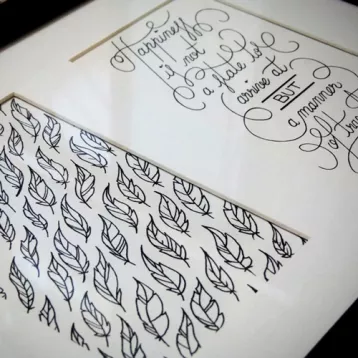 Happiness
is not
a state to
arrive at
BUT
a manner
of